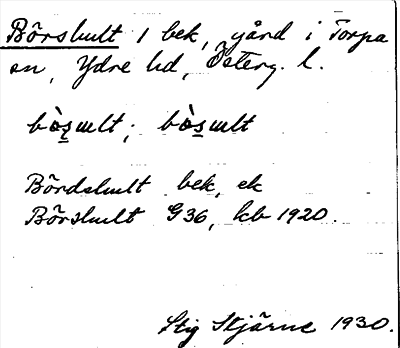 Börshult 1 bek, gård i Torpa
sn, Ydre hd, Österg. l.
bòs̲ult; bòs̲ult
Bördshult bek, ek
Börshult G36, kb 1920.
Stig Stjärne 1930.